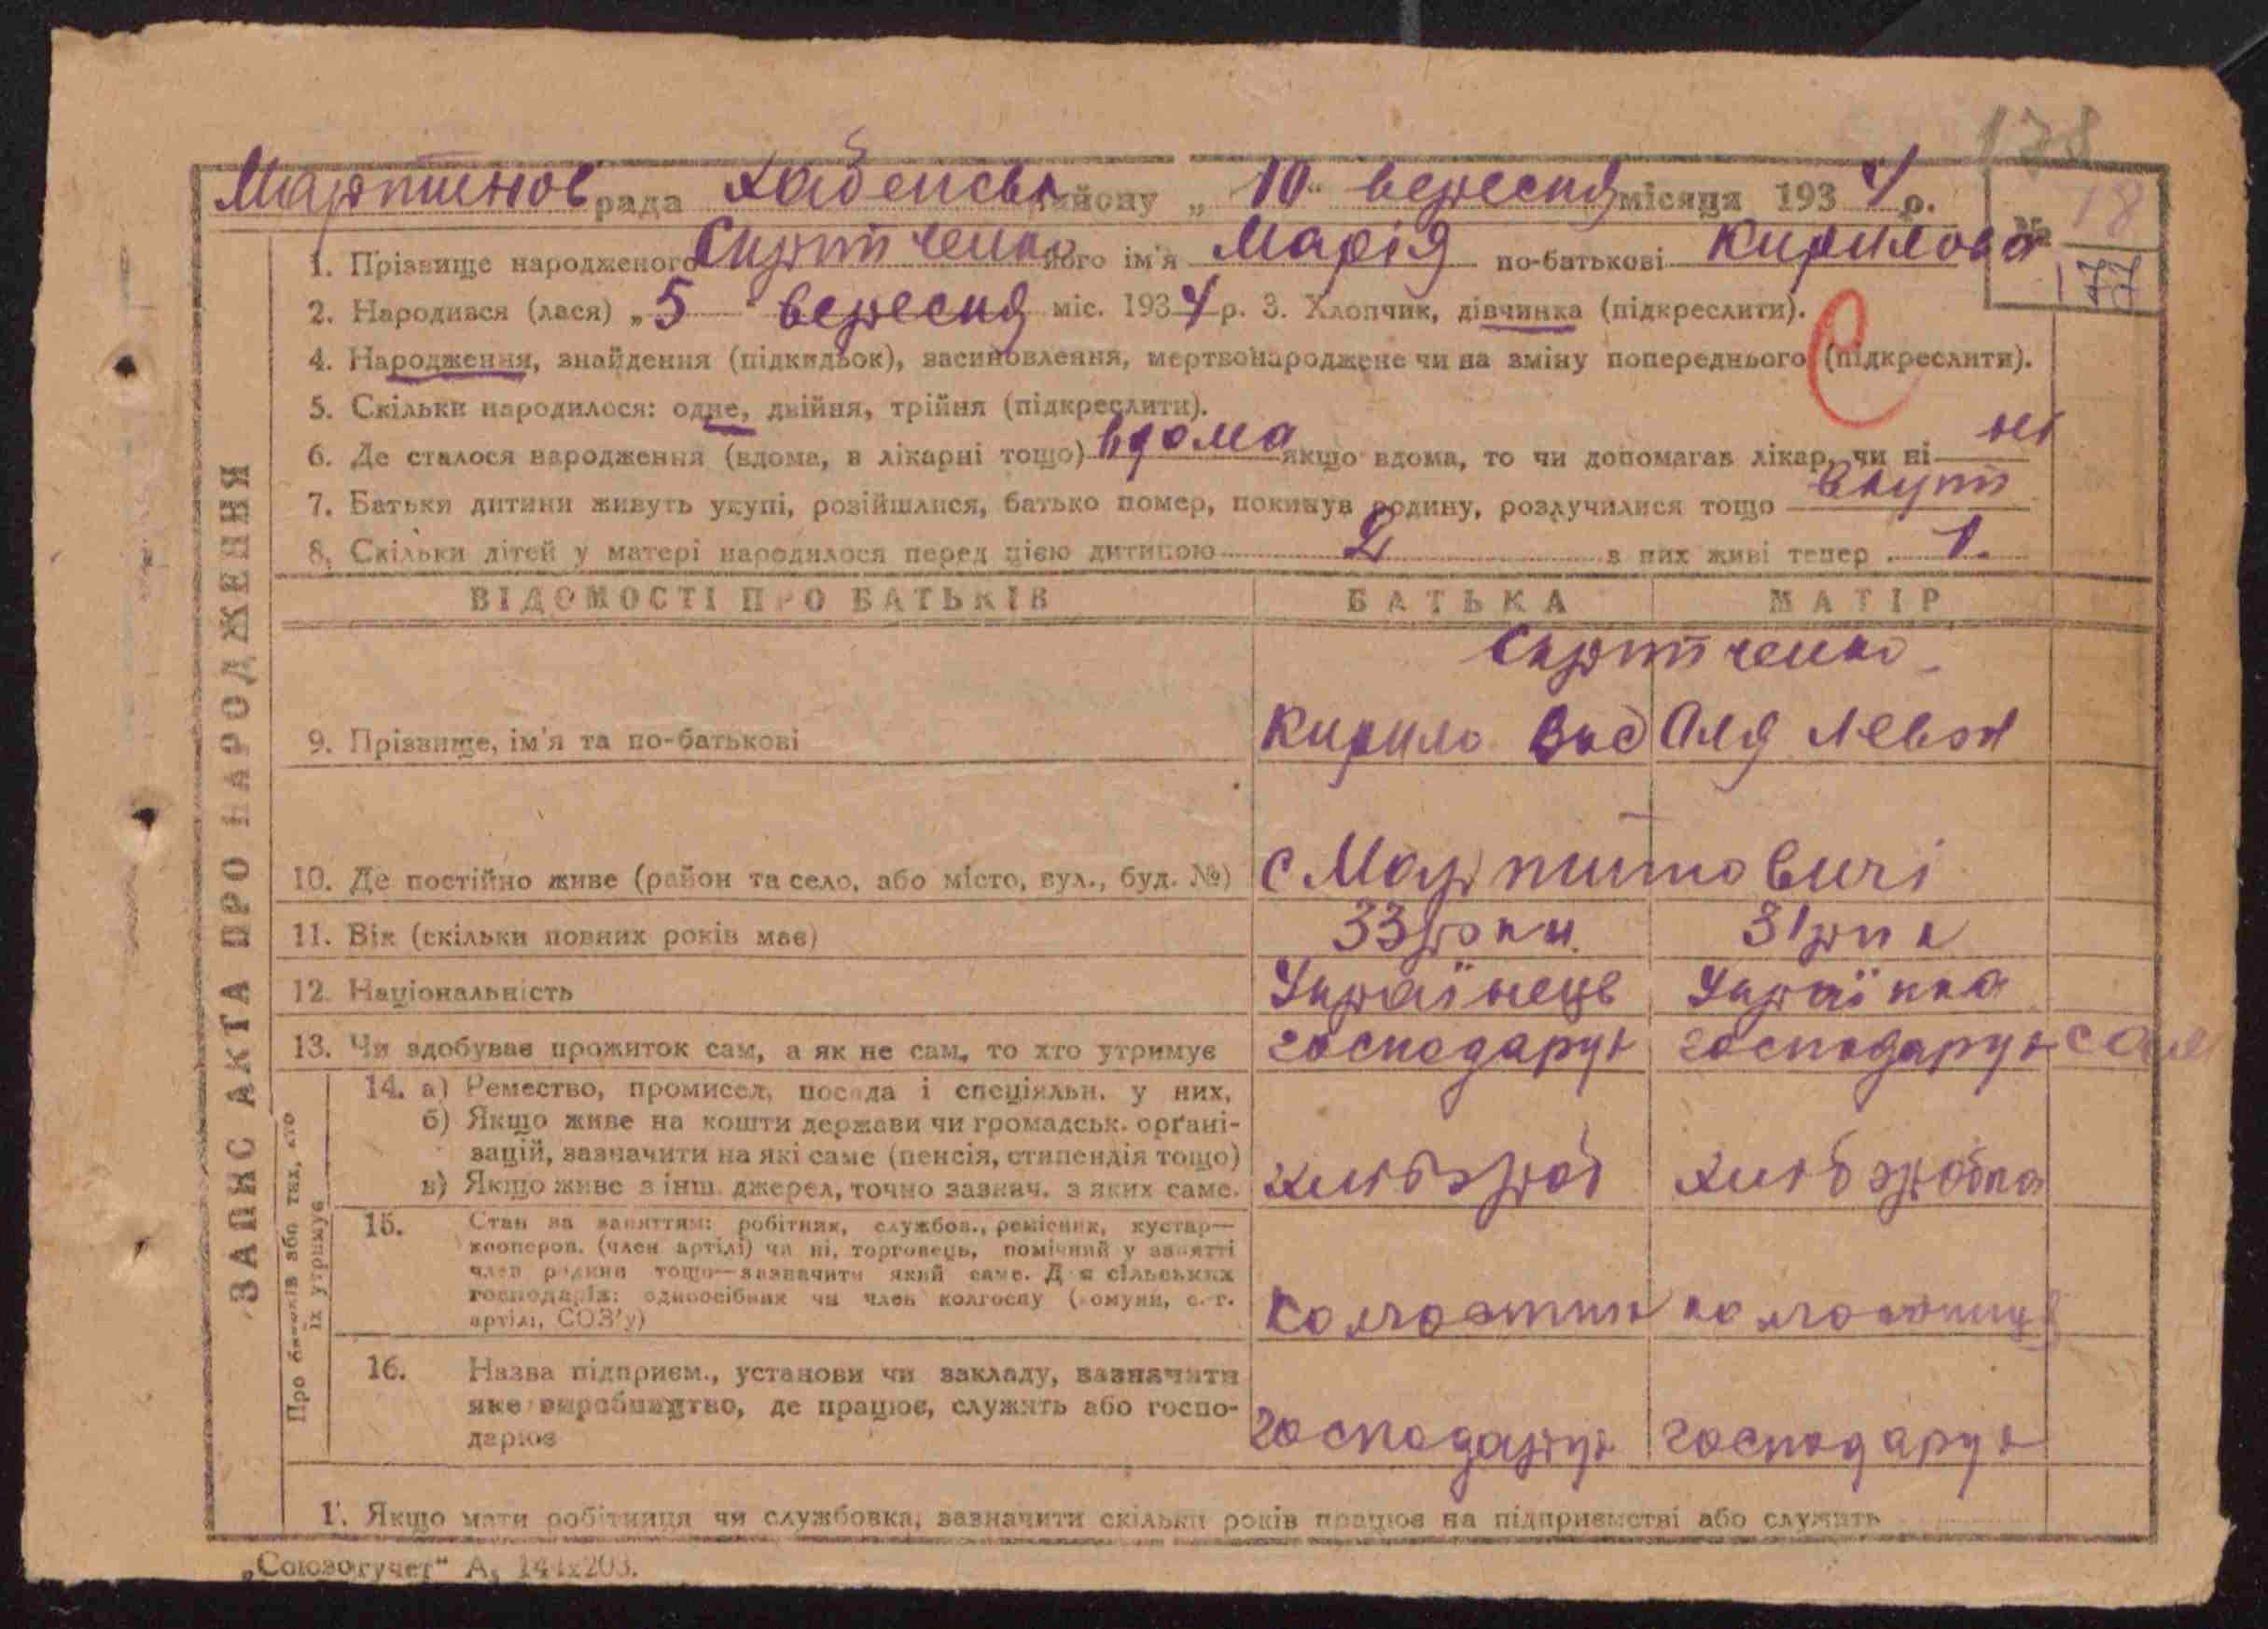 178
Мартинов рада Хабенськ району „ 10 " вересня місяця 1934 р.
№ 18
177
1. Прізвище народженого Скрипченко його ім'я Марія по-батькові Кирилова
2. Народився (лася) „5" вересня міс. 1934 р. 3. Хлопчик, дівчинка (підкреслити).
4. Народження, знайдення (підкидьок), засиновлення, мертвонароджене чи на зміну попереднього (підкреслити).
5. Скільки народилося: одне, двійня, трійня (підкреслити).
6. Де сталося народження (вдома, в лікарні тощо) вдома якщо вдома, то чи допомагав лікар, чи ні ні
7. Батьки дитини живуть укупі, розійшлися, батько помер, покинув родину, розлучилися тощо вкупі
8. Скільки дітей у матері народилося перед цією дитиною 2 з них живі тепер 1.
ЗАПИС АКТА ПРО НАРОДЖЕННЯ
ВІДОМОСТІ ПРО БАТЬКІВ БАТЬКА МАТІР
9. Прізвище, ім'я та по-батькові Кирило Оля Левон
10. Де постійно живе (район та село, або місто, вул., буд. №) с Мартиновичі
11. Вік (скільки повних років має) 33 роки 31 рік
12. Національність Українець Українка
13. Чи здобуває прожиток сам, а як не сам, то хто утримує господарує господарує сам
Про батьків або тих, хто
їх утримує
14. а) Ремество, промисел, посада і спеціяльн. у них,
б) Якщо живе на кошти держави чи громадськ. орґані-
зацій, зазначити на які саме (пенсія, стипендія тощо)
в) Якщо живе з інш. джерел, точно зазнач. з яких саме. хлібороб хліборобка
15. Стан за заняттям: робітник, службов., ремісник, кустар—
кооперов. (член артілі) чи ні, торговець, помічний у занятті
член родини тощо—зазначити який саме. Для сільських
господарів: одноосібник чи член колгоспу (комуни, с.-г.
артілі, СОЗ'у) колгоспник колгоспниця
16. Назва підприєм., установи чи закладу, зазначити
яке виробництво, де працює, служить або госпо-
дарює господарує господарує
17. Якщо мати робітниця чи службовка, зазначити скільки років працює на підприємстві або служить
„Союзоргучет" А,